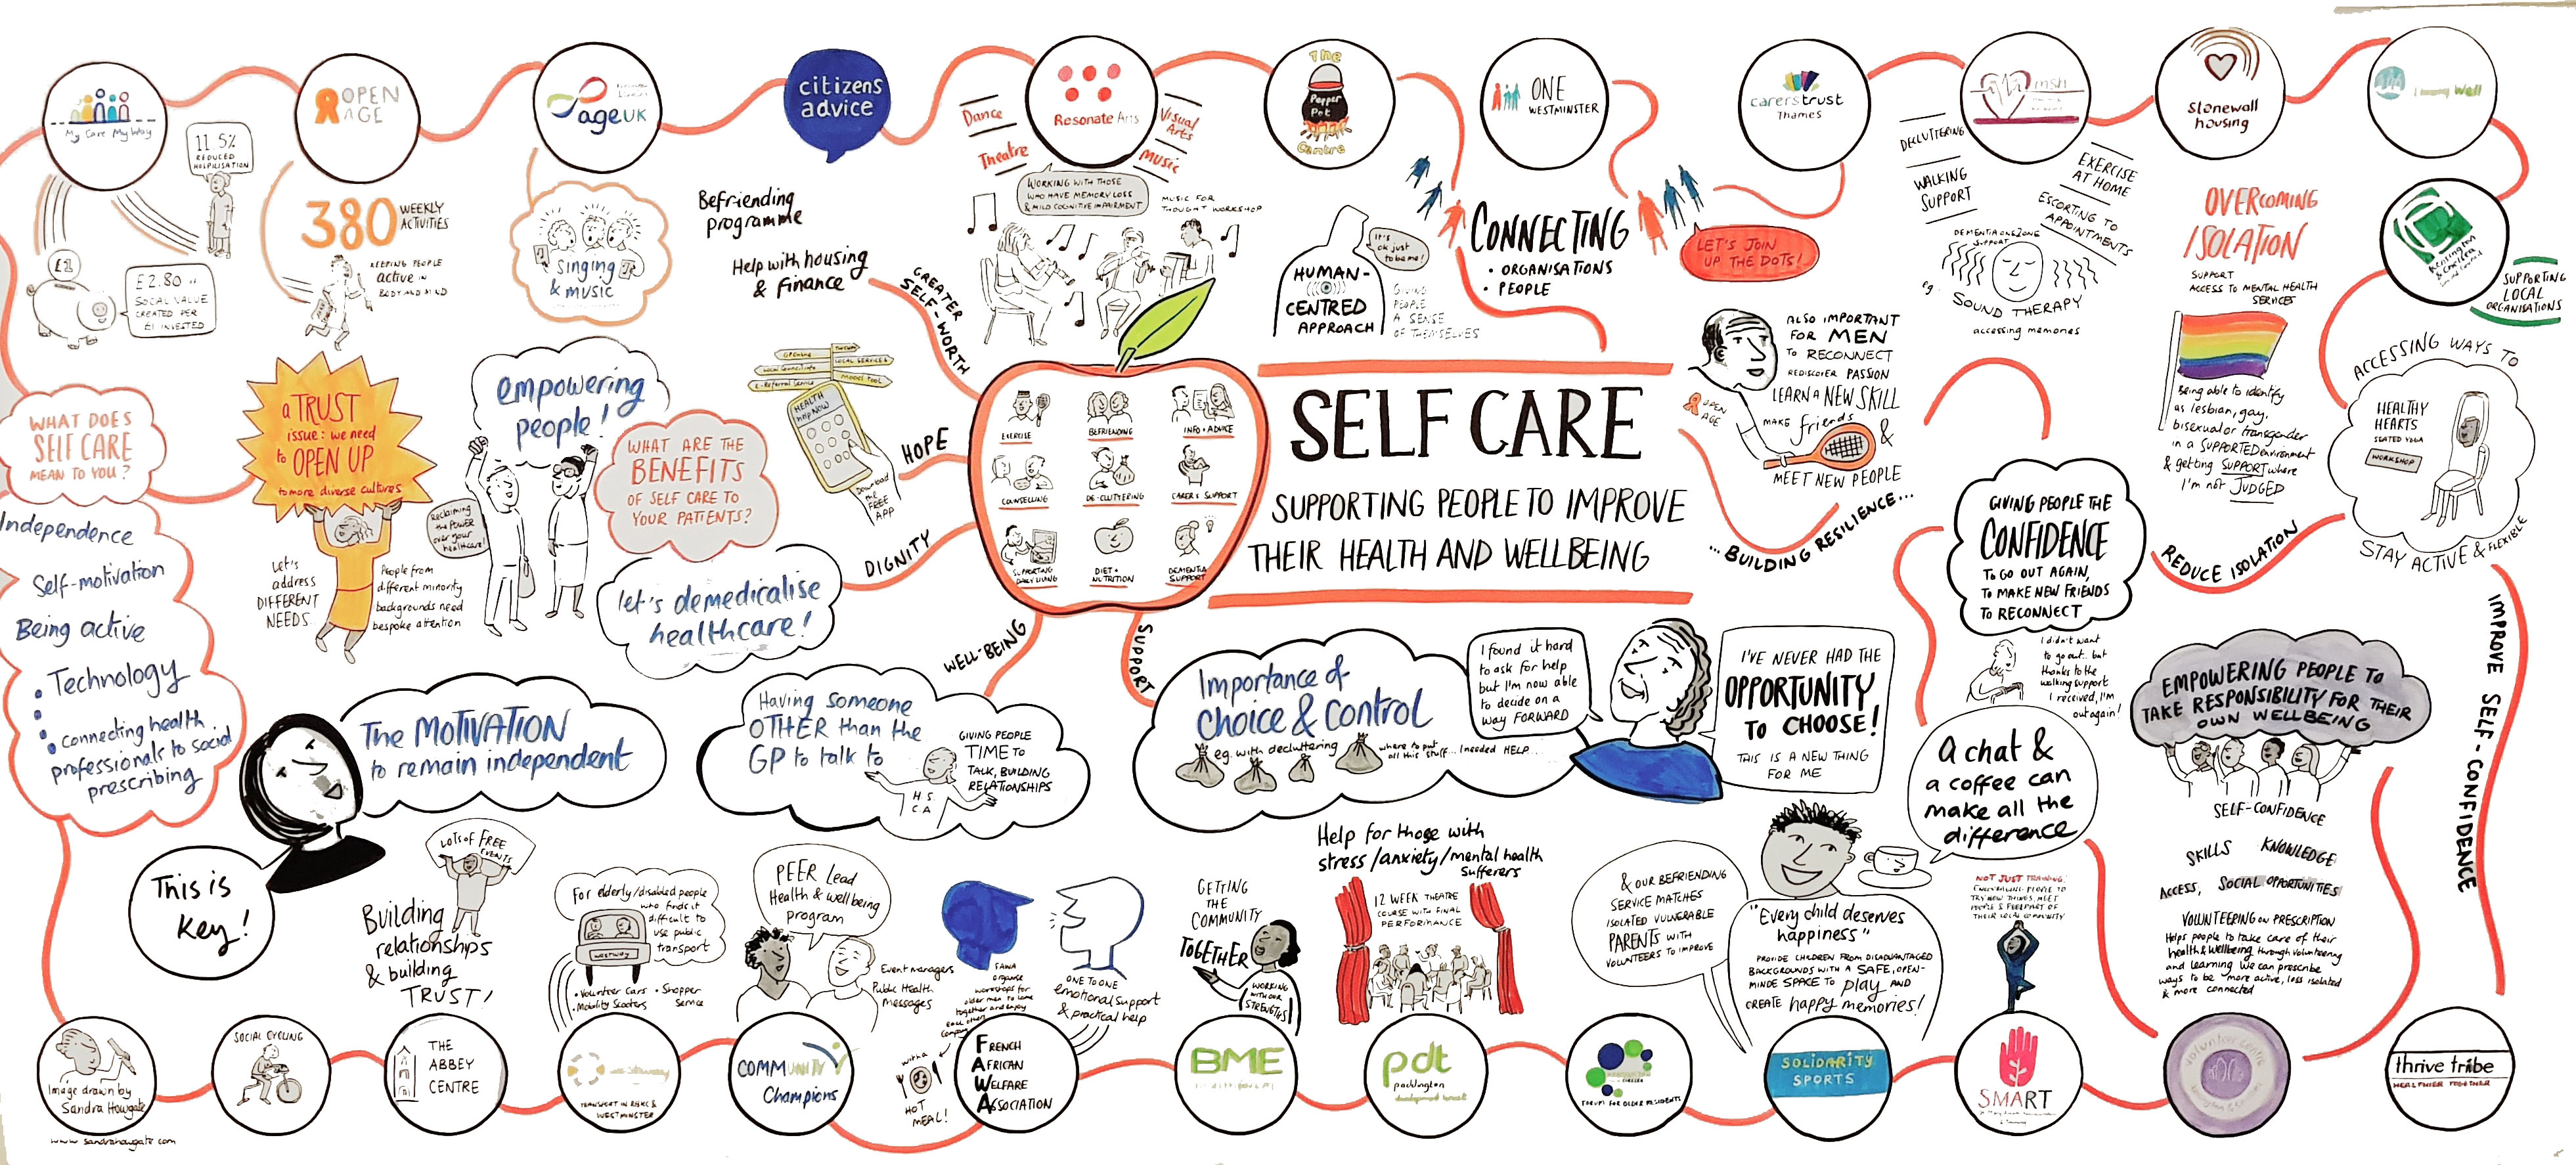 My Care My Way
11.5%
REDUCED
HOSPILISATION
£1
£2.80
SOCIAL VALUE
CREATED PER
£1 INVESTED
OPEN
AGE
380
WEEKLY
ACTIVITIES
KEEPING PEOPLE
active IN
BODY AND MIND
ageUK
Singing
& music
citizens
advice
Befriending
programme
Help with housing
& finance
Resonate Arts
Dance
Theatre
Visual
Arts
Music
WORKING WITH THOSE
WHO HAVE MEMORY LOSS
& MILD COGNITIVE IMPAIRMENT
MUSIC FOR
THOUGHT WORKSHOP
The
Pepper
Pot
Centre
HUMAN-
CENTRED
APPROACH
It's
ok just
to be me!
GIVING
PEOPLE
A SENSE
OF THEMSELVES
ONE
WESTMINSTER
CONNECTING
• ORGANISATIONS
• PEOPLE
LET'S JOIN
UP THE DOTS!
carerstrust
Thames
msh
DECLUTTERING
WALKING
SUPPORT
EXERCISE
AT HOME
ESCORTING TO
APPOINTMENTS
DEMENTIA ONE 2 ONE
SUPPORT
eg.
SOUND THERAPY
accessing memories
Stonewall
housing
OVERCOMING
ISOLATION
SUPPORT
ACCESS TO MENTAL HEALTH
SERVICES
Being able to identify
as lesbian, gay,
bisexual or transgender
in a SUPPORTED environment
& getting SUPPORT where
I'm not JUDGED
Living Well
Kensington
& Chelsea
SUPPORTING
LOCAL
ORGANISATIONS
ACCESSING WAYS TO
HEALTHY
HEARTS
SEATED YOGA
WORKSHOP
STAY ACTIVE & FLEXIBLE
WHAT DOES
SELF CARE
MEAN TO YOU?
Independence
Self-motivation
Being active
• Technology
• connecting health
professionals to social
prescribing
a TRUST
issue: we need
to OPEN UP
to more diverse cultures
Let's
address
DIFFERENT
NEEDS
People from
different minority
backgrounds need
bespoke attention
empowering
people!
Reclaiming
the POWER
over your
healthcare!
WHAT ARE THE
BENEFITS
OF SELF CARE TO
YOUR PATIENTS?
let's demedicalise
healthcare!
GP Online
Local Council info
e-Referral Service
LOCAL SERVICES
MODEL TOOL
HEALTH
HELP NOW
Download
the
FREE
APP
GREATER
SELF-WORTH
HOPE
DIGNITY
WELL-BEING
SUPPORT
EXERCISE
BEFRIENDING
INFO + ADVICE
COUNSELLING
DE-CLUTTERING
CARERS SUPPORT
SUPPORTING
DAILY LIVING
DIET +
NUTRITION
DEMENTIA
SUPPORT
SELF CARE
SUPPORTING PEOPLE TO IMPROVE
THEIR HEALTH AND WELLBEING
ALSO IMPORTANT
FOR MEN
TO RECONNECT
REDISCOVER PASSION
LEARN A NEW SKILL
MAKE friends
&
MEET NEW PEOPLE
OPEN
AGE
... BUILDING RESILIENCE...
GIVING PEOPLE THE
CONFIDENCE
TO GO OUT AGAIN,
TO MAKE NEW FRIENDS
TO RECONNECT
I didn't want
to go out.. but
thanks to the
walking support
I received, I'm
out again!
REDUCE ISOLATION
IMPROVE SELF-CONFIDENCE
EMPOWERING PEOPLE TO
TAKE RESPONSIBILITY FOR THEIR
OWN WELLBEING
SELF-CONFIDENCE
SKILLS KNOWLEDGE
ACCESS, SOCIAL OPPORTUNITIES
VOLUNTEERING ON PRESCRIPTION
Helps people to take care of their
health & wellbeing through volunteering
and learning. We can prescribe
ways to be more active, less isolated
& more connected
The MOTIVATION
to remain independent
This is
key!
Having someone
OTHER than the
GP to talk to
H.S.
C.A
GIVING PEOPLE
TIME TO
TALK, BUILDING
RELATIONSHIPS
Importance of
choice & control
eg. with decluttering
where to put
all this stuff... I needed HELP...
I found it hard
to ask for help
but I'm now able
to decide on a
way FORWARD
I'VE NEVER HAD THE
OPPORTUNITY
TO CHOOSE!
THIS IS A NEW THING
FOR ME
A chat &
a coffee can
make all the
difference
Lots of FREE
EVENTS
Building
relationships
& building
TRUST!
For elderly/disabled people
who finds it
difficult to
use public
transport
WESTWAY
• Volunteer Cars • Shopper
• Mobility Scooters Service
PEER Lead
Health & wellbeing
program
Event managers
Public Health
messages
FAWA
organise
workshops for
older men to come
together and enjoy
each others
company
with a
HOT
MEAL!
ONE TO ONE
emotional support
& practical help
GETTING
THE
COMMUNITY
TOGETHER
WORKING
WITH OUR
STRENGTHS!
Help for those with
stress/anxiety/mental health
sufferers
12 WEEK THEATRE
COURSE WITH FINAL
PERFORMANCE
& OUR BEFRIENDING
SERVICE MATCHES
ISOLATED VULNERABLE
PARENTS WITH
VOLUNTEERS TO IMPROVE
"Every child deserves
happiness"
PROVIDE CHILDREN FROM DISADVANTAGED
BACKGROUNDS WITH A SAFE, OPEN-
MINDE SPACE TO play AND
CREATE happy memories!
NOT JUST TRAINING!
ENCOURAGING PEOPLE TO
TRY NEW THINGS, MEET
PEOPLE & FEEL PART OF
THEIR LOCAL COMMUNITY
Image drawn by
Sandra Howgate
www.sandrahowgate.com
SOCIAL CYCLING
THE
ABBEY
CENTRE
TRANSPORT IN RBKC &
WESTMINSTER
COMMUNITY
Champions
FRENCH
AFRICAN
WELFARE
ASSOCIATION
BME
pdt
paddington
development trust
FORUM FOR OLDER RESIDENTS
SOLIDARITY
SPORTS
SMART
volunteer centre
thrive tribe
HEALTHIER TOGETHER